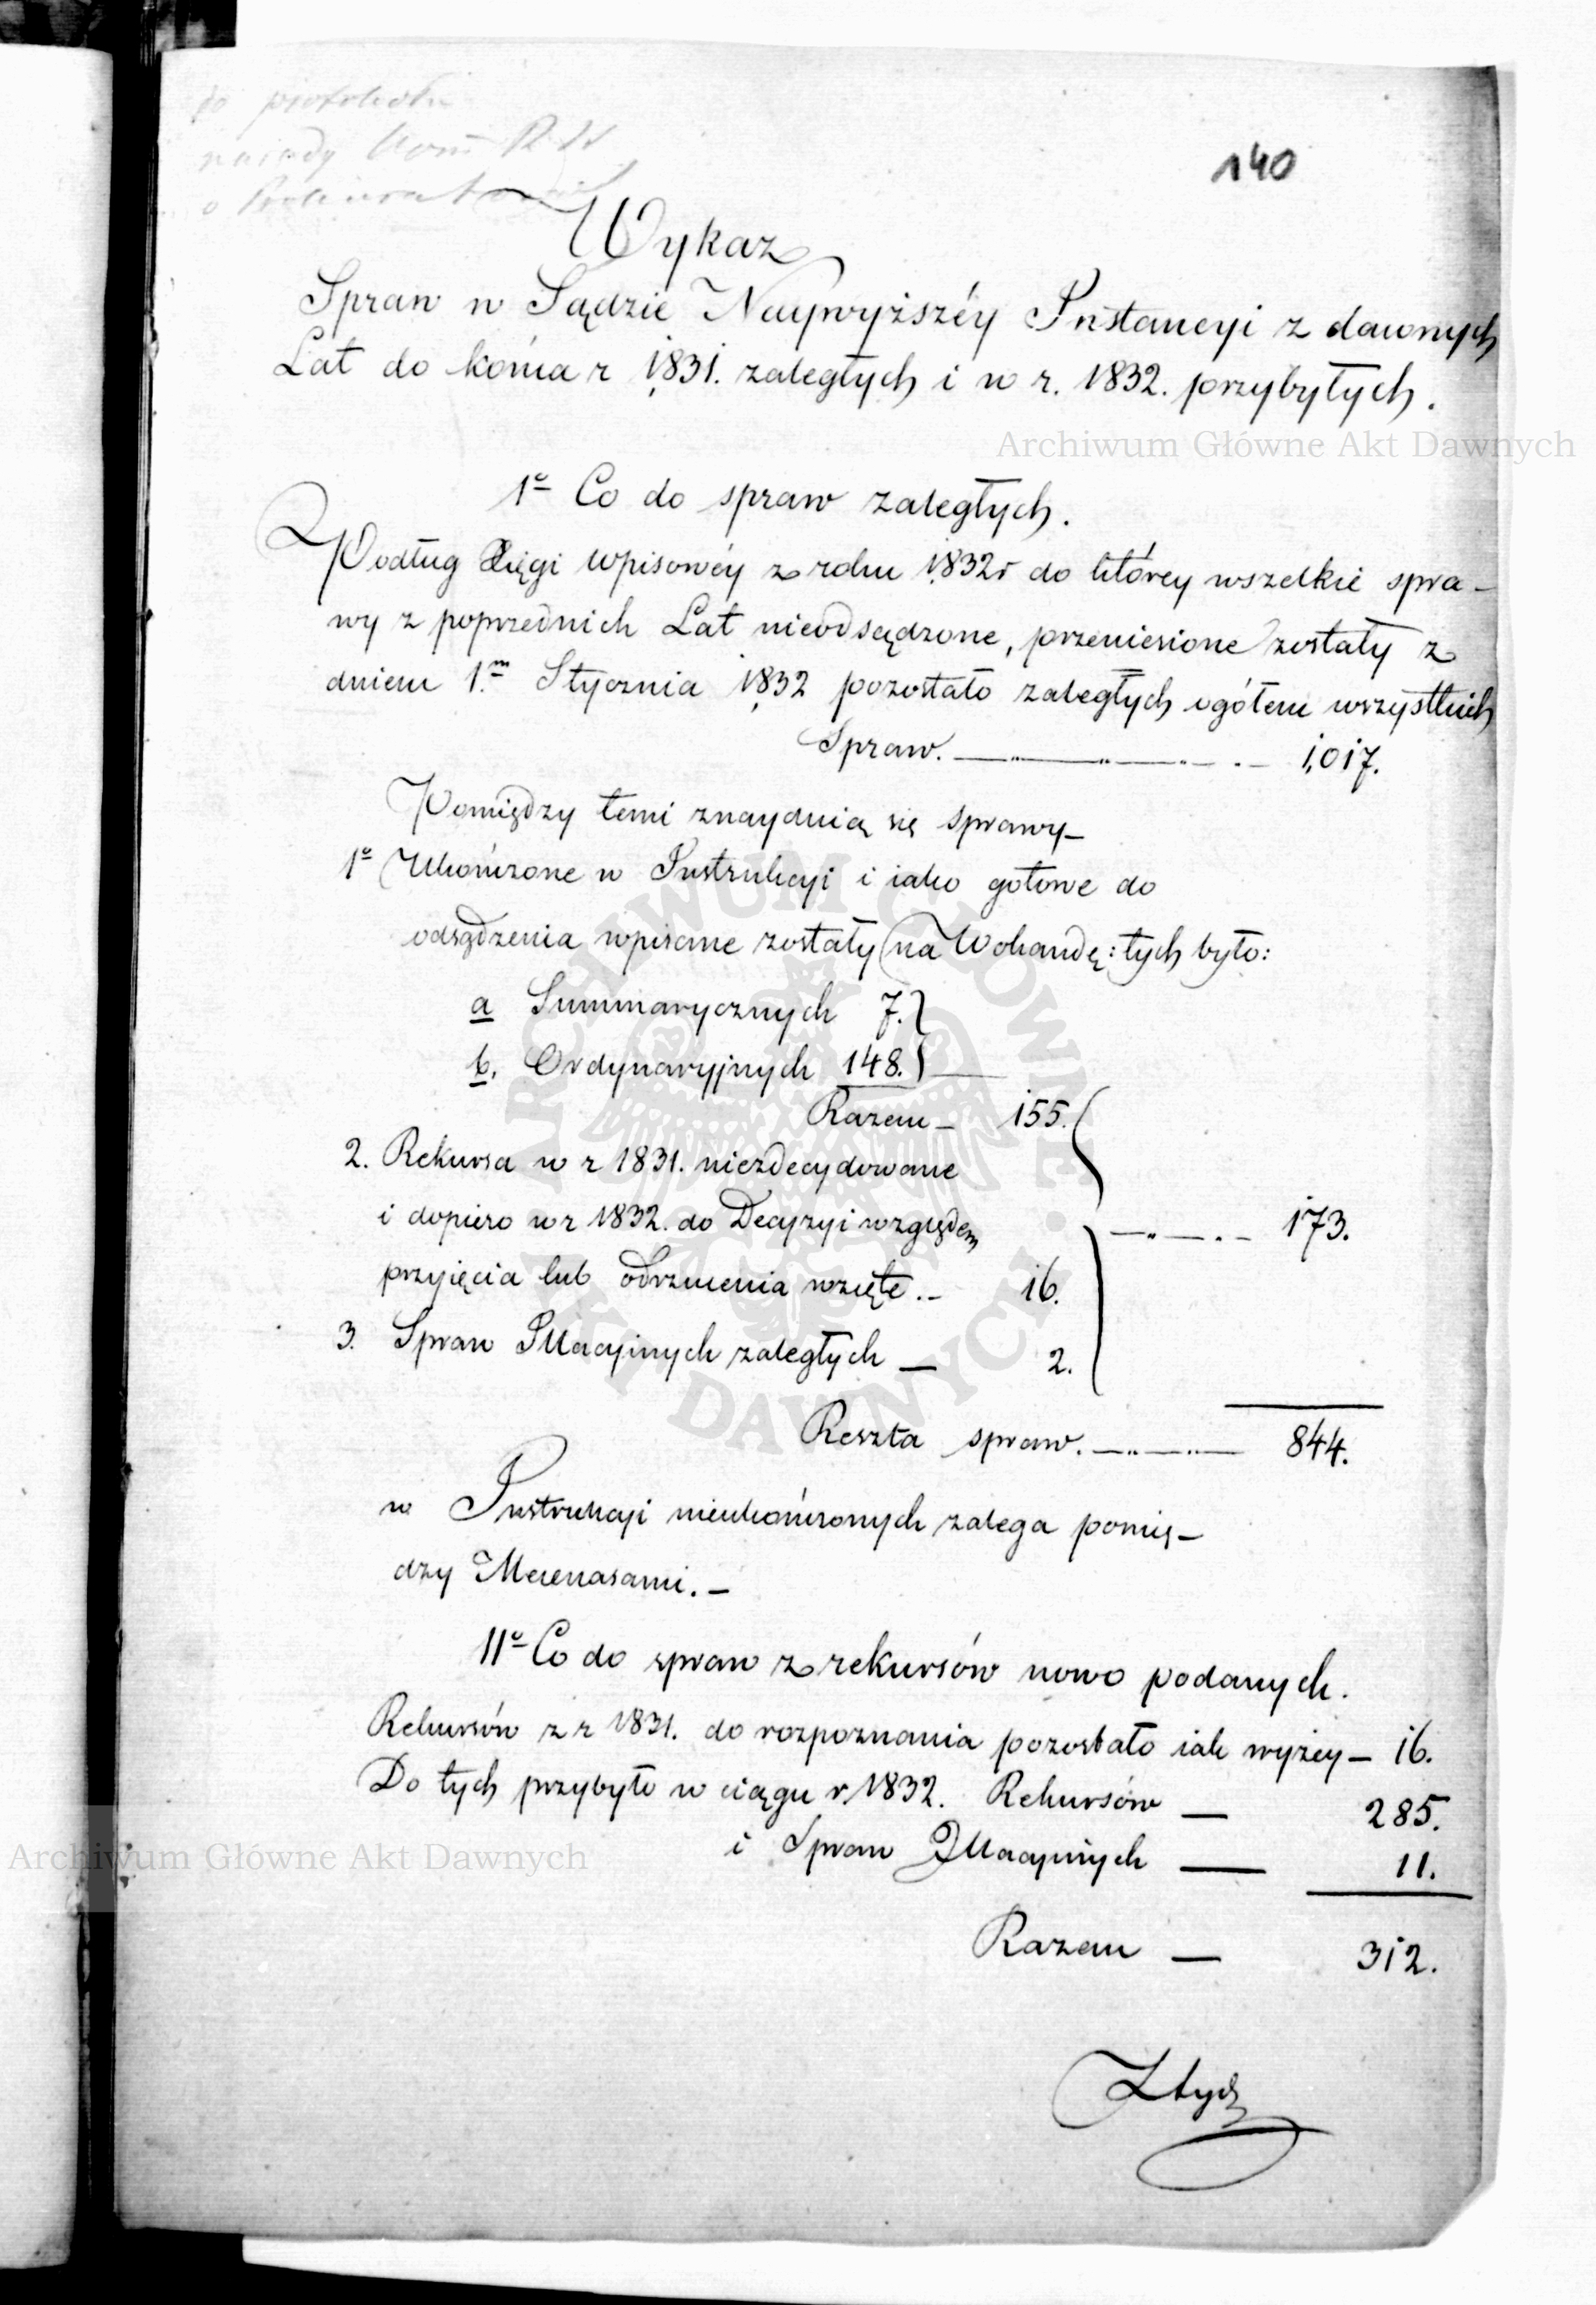 do protokołu
narady Kom R. S.
o
140
Wykaz
Spraw w Sądzie Naywyższéy Instancyi z dawnych
Lat do końca r 1831. zaległych i w r. 1832. przybyłych.
Archiwum Główne Akt Dawnych
1º Co do spraw zaległych.
Podług Xięgi Wpisowéy z roku 1832r do którey wszelkie spra-
wy z poprzednich Lat nieodsądzone, przeniesione zostały z
dniem 1.m Stycznia 1832 pozostało zaległych ogółem wszystkich
Spraw. 1,017.
Pomiędzy temi znayduią się sprawy-
1º Ukończone w Instrukcyi i iako gotowe do
odsądzenia wpisane zostały na Wokandę: tych było:
a Summarycznych 7.
b. Ordynaryjnych 148.
Razem - 155.
2. Rekursa w r 1831. niezdecydowane
i dopiero w r 1832. do Decyzyi względem
173.
przyjęcia lub odrzucenia wzięte.- 16.
3. Spraw Illacyinych zaległych — 2.
Reszta spraw. 844.
w Instrukcyi nieukończonych zalega pomię-
dzy Mecenasami.-
IIº Co do spraw z rekursów nowo podanych.
Rekursów z r 1831. do rozpoznania pozostało iak wyżey - 16.
Do tych przybyło w ciągu r. 1832. Rekursów — 285.
i Spraw Illacyinych — 11.
Archiwum Główne Akt Dawnych
Razem — 312.
ARCHIWUM GŁÓWNE AKT DAWNYCH